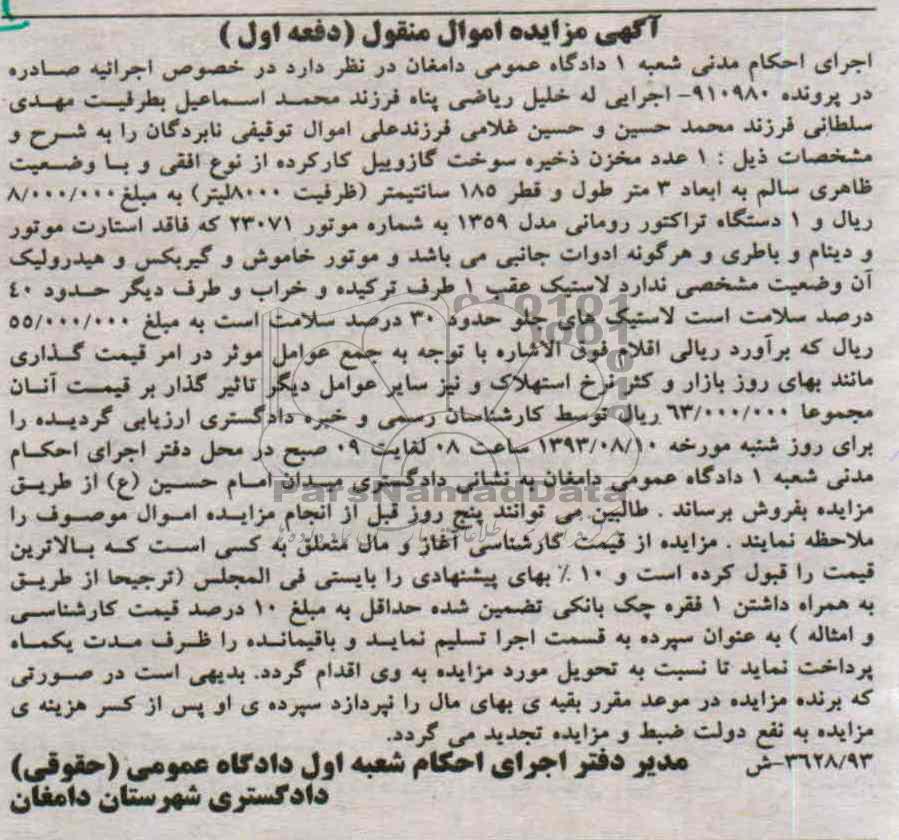 آگهی مزایده اموال منقول (دفعه اول )
اجرای احکام مدنی شعبه ۱ دادگاه عمومی دامغان در نظر دارد در خصوص اجرائیه صادره
در پرونده ۹۱۰۹۸۰- اجرایی له خلیل ریاضی پناه فرزند محمد اسماعیل بطرفیت مهدی
سلطانی فرزند محمد حسین و حسین غلامی فرزندعلی اموال توقیفی نابردگان را به شرح و
مشخصات ذیل : ۱ عدد مخزن ذخیره سوخت گازوییل کارکرده از نوع افقی و با وضعیت
ظاهری سالم به ابعاد ۳ متر طول و قطر ۱۸۵ سانتیمتر (ظرفیت ۸۰۰۰لیتر) به مبلغ ۸/۰۰۰/۰۰۰
ریال و ۱ دستگاه تراکتور رومانی مدل ۱۳۵۹ به شماره موتور ۲۳۰۷۱ که فاقد استارت موتور
و دینام و باطری و هرگونه ادوات جانبی می باشد و موتور خاموش و گیربکس و هیدرولیک
آن وضعیت مشخصی ندارد لاستیک عقب ۱ طرف ترکیده و خراب و طرف دیگر حدود ۴۰
درصد سلامت است لاستیک های جلو حدود ۳۰ درصد سلامت است به مبلغ ۵۵/۰۰۰/۰۰۰
ریال که برآورد ریالی اقلام فوق الاشاره با توجه به جمع عوامل موثر در امر قیمت گذاری
مانند بهای روز بازار و کثر نرخ استهلاک و نیز سایر عوامل دیگر تاثیر گذار بر قیمت آنان
مجموعا ۶۳/۰۰۰/۰۰۰ ریال توسط کارشناسان رسمی و خبره دادگستری ارزیابی گردیده را
برای روز شنبه مورخه ۱۳۹۳/۰۸/۱۰ ساعت ۰۸ لغایت ۰۹ صبح در محل دفتر اجرای احکام
مدنی شعبه ۱ دادگاه عمومی دامغان به نشانی دادگستری میدان امام حسین (ع) از طریق
مزایده بفروش برساند . طالبین می توانند پنج روز قبل از انجام مزایده اموال موصوف را
ملاحظه نمایند . مزایده از قیمت کارشناسی آغاز و مال متعلق به کسی است که بالاترین
قیمت را قبول کرده است و ۱۰ ٪ بهای پیشنهادی را بایستی فی المجلس (ترجیحا از طریق
به همراه داشتن ۱ فقره چک بانکی تضمین شده حداقل به مبلغ ۱۰ درصد قیمت کارشناسی
و امثاله ) به عنوان سپرده به قسمت اجرا تسلیم نماید و باقیمانده را ظرف مدت یکماه
پرداخت نماید تا نسبت به تحویل مورد مزایده به وی اقدام گردد. بدیهی است در صورتی
که برنده مزایده در موعد مقرر بقیه ی بهای مال را نپردازد سپرده ی او پس از کسر هزینه ی
مزایده به نفع دولت ضبط و مزایده تجدید می گردد.
۳۶۲۸/۹۳-ش مدیر دفتر اجرای احکام شعبه اول دادگاه عمومی (حقوقی)
دادگستری شهرستان دامغان
ParsNamadData